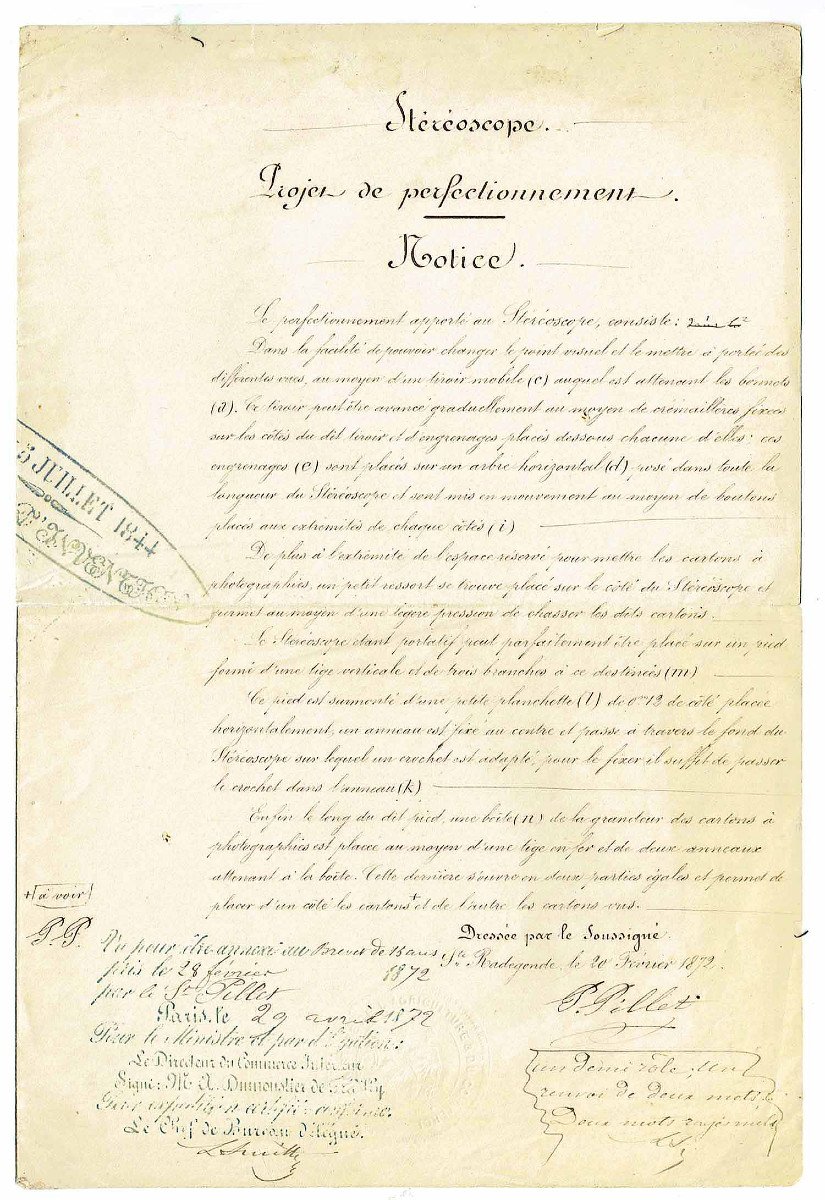 Stéréoscope.
Projet de perfectionnement.
Notice.
Le perfectionnement apporté au Stéréoscope, consiste:
Dans la facilité de pouvoir changer le point visuel et le mettre à portée des
différentes vues, au moyen d'un tiroir mobile (c) auquel est attenant les bonnets
(a). Ce tiroir peut être avancé graduellement au moyen de crémaillères fixées
sur les côtés du dit tiroir et d'engrenages placés dessous chacune d'elles; ces
engrenages (e) sont placés sur un arbre horizontal (d) posé dans toute la
longueur du Stéréoscope et sont mis en mouvement au moyen de boutons
placés aux extrémités de chaque côtés (i)
De plus à l'extrémité de l'espace réservé pour mettre les cartons à
photographies, un petit ressort se trouve placé sur le côté du Stéréoscope et
permet au moyen d'une légère pression de chasser les dits cartons.
Le Stéréoscope étant portatif peut parfaitement être placé sur un pied
formé d'une tige verticale et de trois branches à ce destinées (m)
Ce pied est surmonté d'une petite planchette (l) de 0m12 de côté placée
horizontalement, un anneau est fixé au centre et passe à travers le fond du
Stéréoscope sur lequel un crochet est adapté, pour le fixer il suffit de passer
le crochet dans l'anneau (k)
Enfin le long du dit pied, une boîte (n) de la grandeur des cartons à
photographies est placée au moyen d'une tige en fer et de deux anneaux
attenant à la boîte. Cette dernière s'ouvre en deux parties égales et permet de
placer d'un côté les cartons + et de l'autre les cartons vus.
+ à voir
P.P.
5 JUILLET 1844
Dressée par le Soussigné
Ste Radegonde, le 20 Février 1872.
P. Pillet
Vu pour être annexé au Brevet de 15 ans
pris le 28 février 1872
par le Sr Pillet
Paris, le 29 avril 1872
Pour le Ministre et par délégation:
Le Directeur du Commerce Intérieur
Signé: M. A. Dumoustier de
Pour expédition certifiée conforme.
Le Chef de Bureau délégué.
un demi rôle. Un
renvoi de deux mots
Deux mots rayés nuls